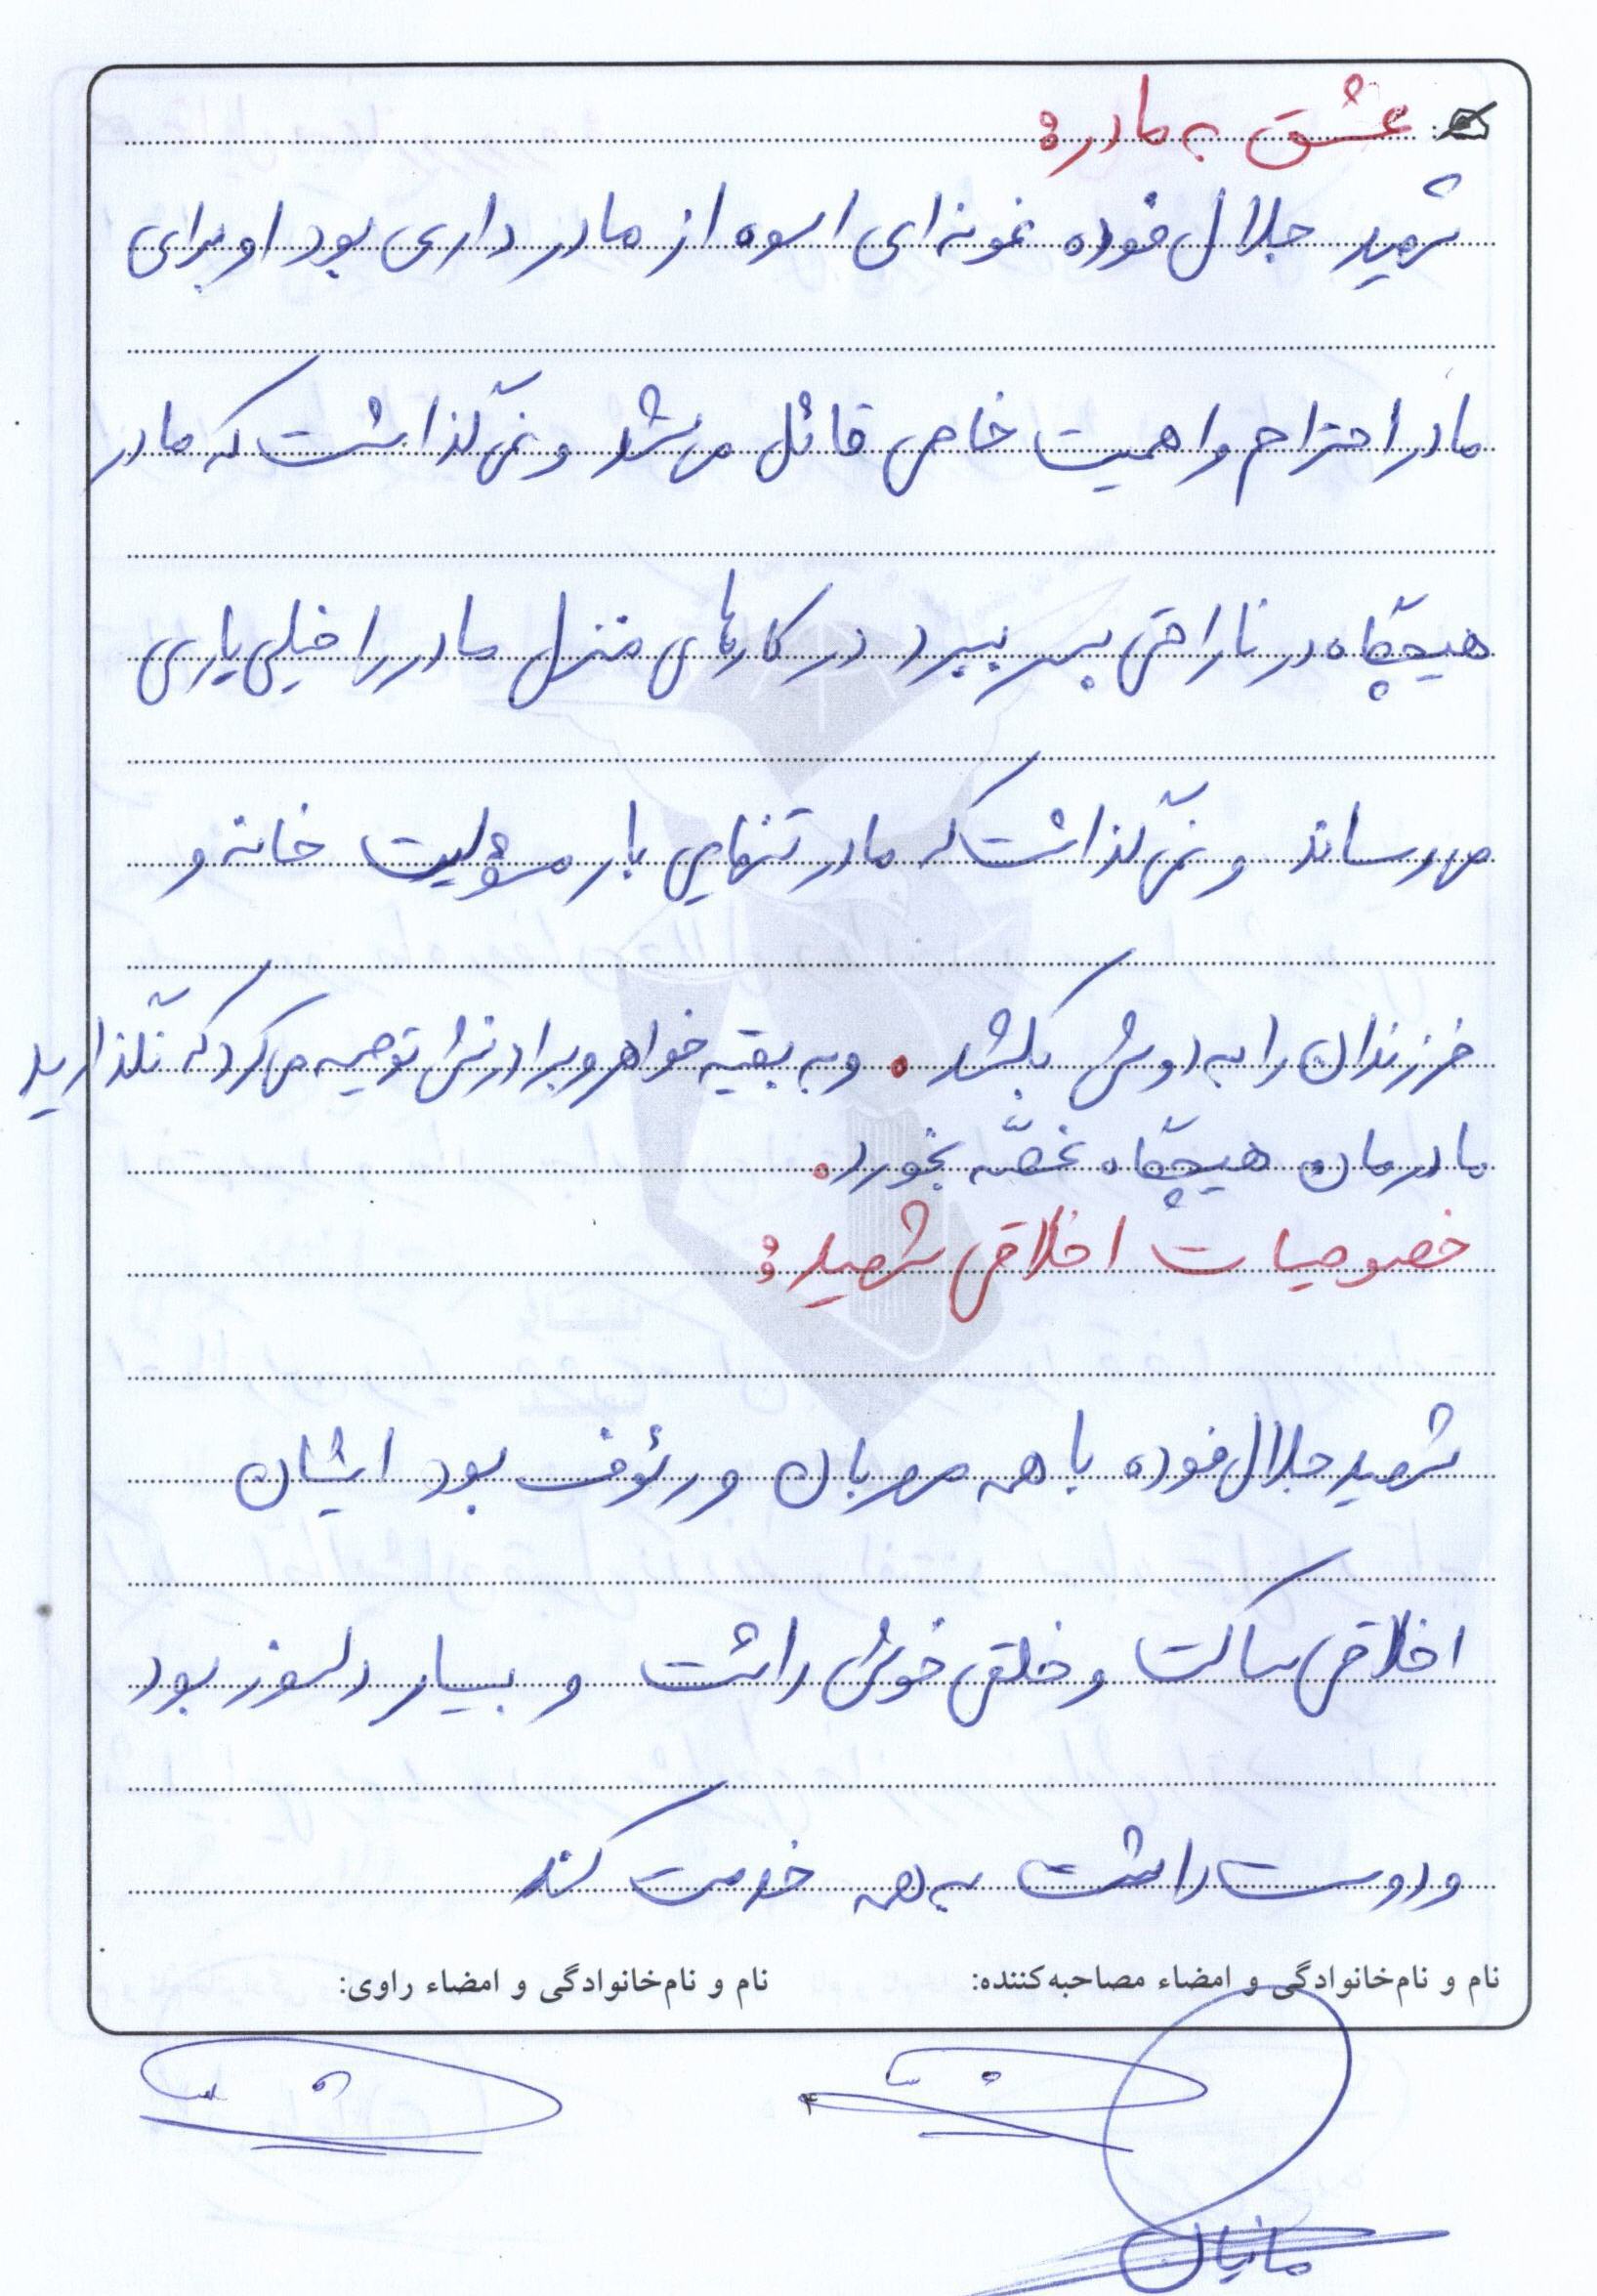 عشق به مادر:
شهید جلال فوده نمونه‌ای اسوه از مادر داری بود او برای
مادر احترام و اهمیت خاصی قائل می‌شد و نمی‌گذاشت که مادر
هیچگاه در ناراحتی بسر ببرد در کارهای منزل مادر را خیلی یاری
می‌رساند و نمی‌گذاشت که مادر تنهایی بار مسؤلیت خانه و
فرزندان را به دوش بکشد. و به بقیه خواهر و برادرنش توصیه می‌کرد که نگذارید
مادرمان هیچگاه غصّه بخورد.
خصوصیات اخلاقی شهید:
شهید جلال فوده با همه مهربان و رئوف بود ایشان
اخلاقی ساکت و خلقی خوش داشت و بسیار دلسوز بود
و دوست داشت به همه خدمت کند
نام و نام‌خانوادگی و امضاء مصاحبه‌کننده: نام و نام‌خانوادگی و امضاء راوی:
۴